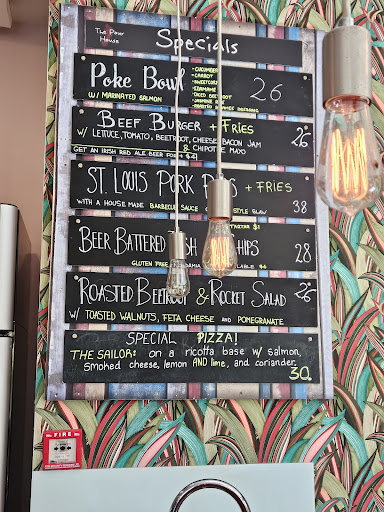 The Pour House
Specials
Poke Bowl
W/ MARINATED SALMON
- CUCUMBER
- CARROT
- SWEETCORN
- EDAMAME
26
BEEF BURGER + FRIES
26
W/ LETTUCE, TOMATO, BEETROOT, CHEESE, BACON JAM
& CHIPOTLE MAYO
GET AN IRISH RED ALE BEER FOR + $4!
ST. LOUIS PORK + FRIES
WITH A HOUSE MADE BARBECUE SLAW
38
BEER BATTERED
28
GLUTEN FREE
ROASTED BEETROOT & ROCKET SALAD
W/ TOASTED WALNUTS, FETA CHEESE AND POMEGRANATE
SPECIAL PIZZA!
THE SAILOR: on a ricotta base w/ salmon,
smoked cheese, lemon AND lime, and coriander.
30.
FIRE